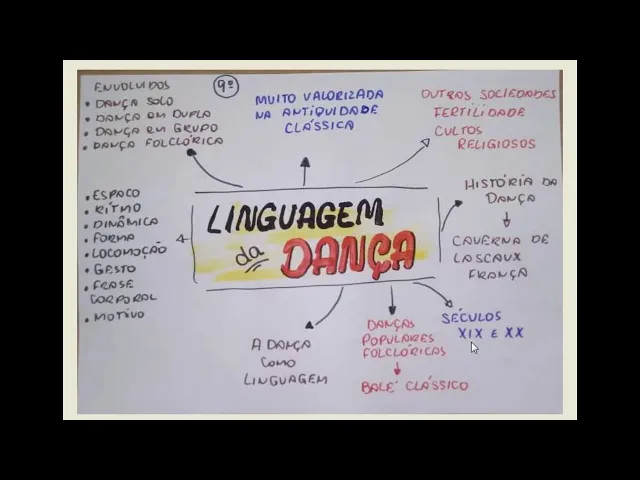 ENVOLVIDOS
• DANÇA SOLO
• DANÇA EM DUPLA
• DANÇA EM GRUPO
• DANÇA FOLCLÓRICA
9º
MUITO VALORIZADA
NA ANTIQUIDADE
CLÁSSICA
OUTRAS SOCIEDADES
FERTILIDADE
CULTOS
RELIGIOSOS
• ESPAÇO
• RITMO
• DINÂMICA
• FORMA
• LOCOMOÇÃO
• GESTO
• FRASE
CORPORAL
• MOTIVO
LINGUAGEM
da
DANÇA
HISTÓRIA DA
DANÇA
CAVERNA DE
LASCAUX
FRANÇA
A DANÇA
COMO
LINGUAGEM
DANÇAS
POPULARES
FOLCLÓRICAS
BALÉ CLÁSSICO
SÉCULOS
XIX E XX